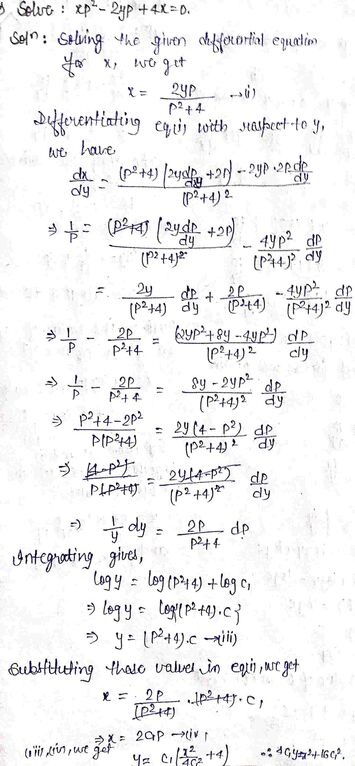 Solve : xp² - 2yp + 4x = 0.
Solⁿ : Solving the given differential equation
for x, we get
x = 2yp / (p²+4) → (i)
Differentiating eq(i) with respect to y,
we have
dx/dy = ((p²+4) (2y dp/dy + 2p) - 2yp · 2p dp/dy) / (p²+4)²
⇒ 1/p = ((p²+4) (2y dp/dy + 2p)) / (p²+4)² - 4yp²/(p²+4)² dp/dy
= 2y/(p²+4) dp/dy + 2p/(p²+4) - 4yp²/(p²+4)² dp/dy
⇒ 1/p - 2p/(p²+4) = (2yp² + 8y - 4yp²)/(p²+4)² dp/dy
⇒ 1/p - 2p/(p²+4) = (8y - 2yp²)/(p²+4)² dp/dy
⇒ (p²+4-2p²)/(p(p²+4)) = 2y(4-p²)/(p²+4)² dp/dy
⇒ (4-p²)/(p(p²+4)) = 2y(4-p²)/(p²+4)² dp/dy
⇒ 1/y dy = 2p/(p²+4) dp
Integrating gives,
log y = log(p²+4) + log c₁
⇒ log y = log{(p²+4).c}
⇒ y = (p²+4).c → (iii)
Substituting these values in eq(i), we get
x = 2p/(p²+4) · (p²+4) · c₁
⇒ x = 2c₁p → (iv)
(iii), (iv), we get y = c₁(x²/4c₁² + 4) ∴ 4c₁y = x² + 16c₁².